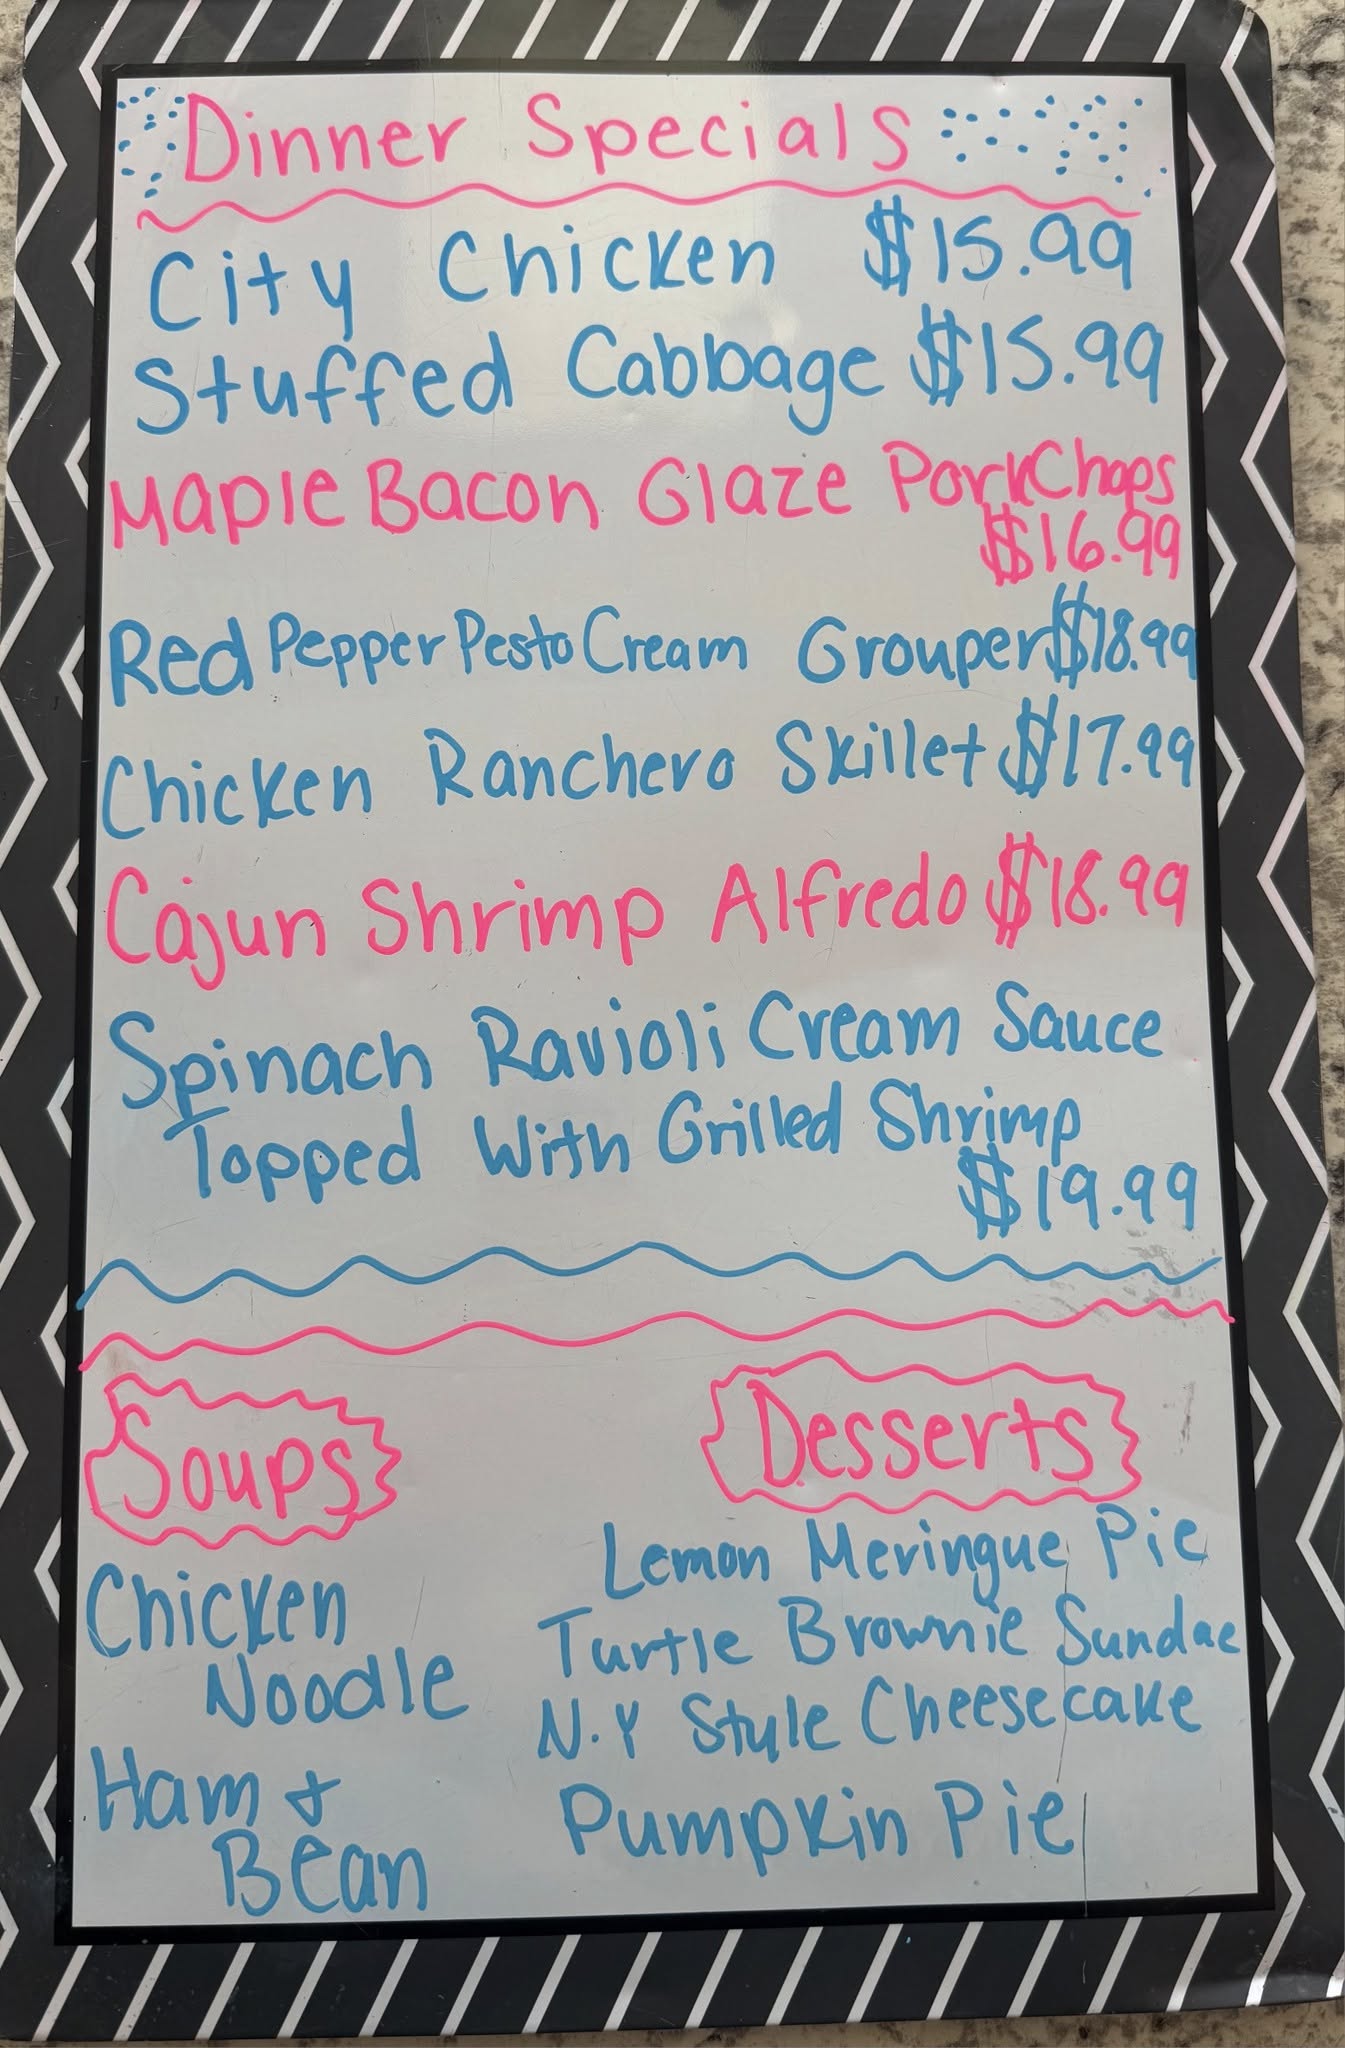 Dinner Specials
City Chicken $15.99
Stuffed Cabbage $15.99
Maple Bacon Glaze Pork Chops
$16.99
Red Pepper Pesto Cream Grouper $18.99
Chicken Ranchero Skillet $17.99
Cajun Shrimp Alfredo $18.99
Spinach Ravioli Cream Sauce
Topped With Grilled Shrimp
$19.99
Soups
Chicken
Noodle
Ham &
Bean
Desserts
Lemon Meringue Pie
Turtle Brownie Sundae
N.Y Style Cheesecake
Pumpkin Pie